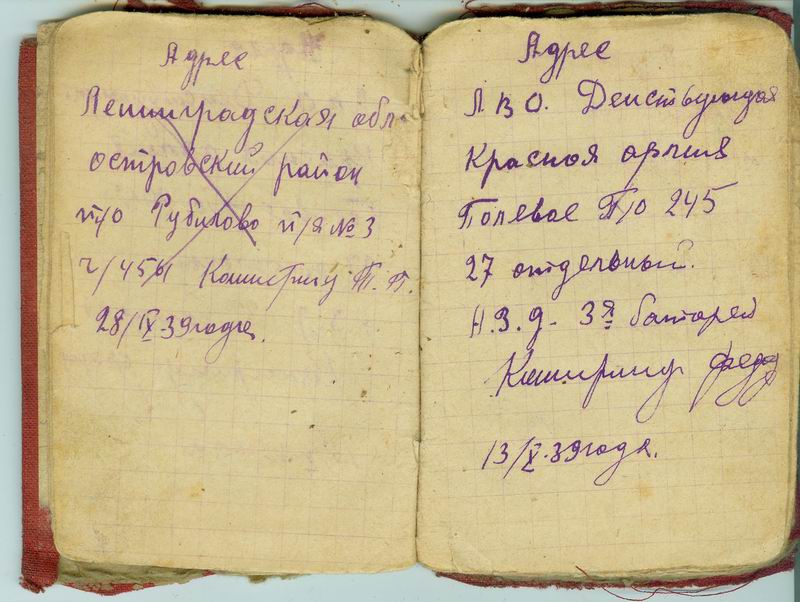 Адрес
Ленинградская обл.
островский район
п/о Рубилово п/я № 3
ч/4561 Каширину Т. П.
28/IX.39 года.
Адрес
Л В О. Действующая
Красная армия
Полевое П/О 245
27 отдельный.
А.З.Д. 3я батарея
Каширину
13/X.39 года.